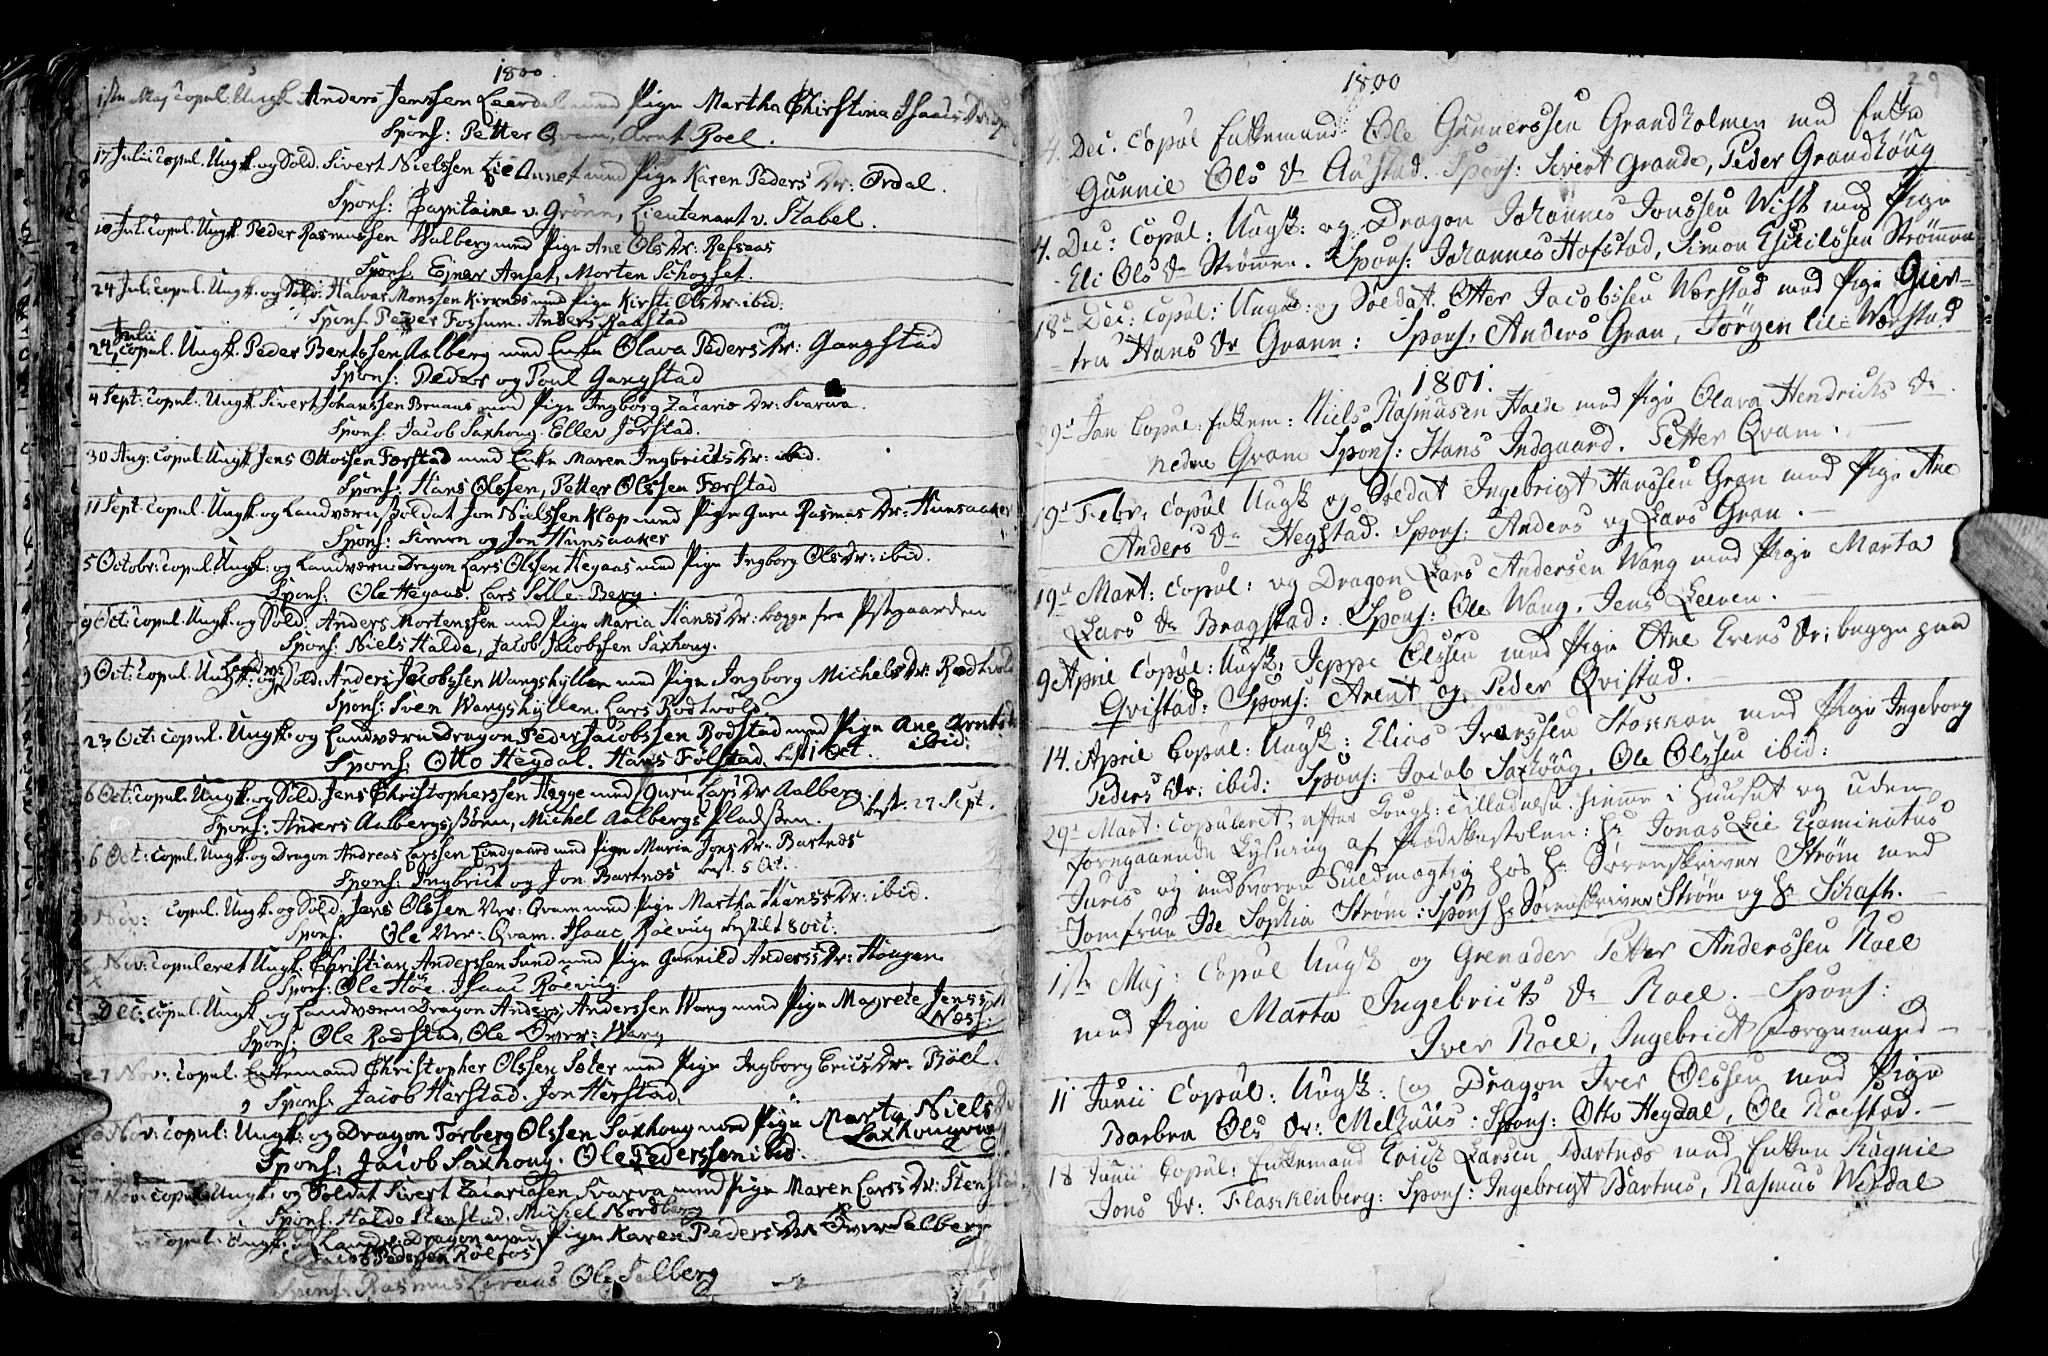 1800.
1ste Maj copul: Ungk. Anders Jenssen Leerdal med Pige Martha Christina Isaacs Dr:
Spons: Petter Qvam, Arnt Roel.
17 Julii Copul. Ungk. og Sold. Sivert Nielssen Lie Annet med Pige Karen Peders Dr: Ordal.
Spons: Capitaine v. Grönn, Lieutenant v. Stabel.
10 Jul. copul. Ungk. Peder Rasmussen Walberg med Pige Ane Ols Dr: Refsaas
Spons. Ejner Anset, Morten Schogset.
24 Jul: copul. Ungk. og Sold: Halvar Monssen Kirknæs med Pige Kirsti Ols Dr: ibid:
Spons. Peder Fossum. Anders Raastad
24 Julii copul. Ungk. Peder Bentssen Aalberg med Enke Olava Peders Dr: Gangstad
Spons: Peder og Poul Gangstad
4 Sept: copul. Ungk. Sivert Johanssen Bruaas med Pige Ingborg Zacariæ Dr: Svarva.
Spons. Jacob Saxhoug. Eller Jörstad.
30 Aug: copul. Ungk. Jens Ottossen Færstad med Enke Maren Ingbricts Dr: ibid.
Spons: Hans Olssen, Petter Olssen Færstad
11 Sept. copul. Ungk. og Landværn Soldat Jon Nielssen Klæp med Pige Guru Rasmus Dr: Hunsaaker
Spons: Simon og Jon Hunsaaker
5 Octobr: copul. Ungk: og Landværn Dragon Lars Olssen Hegaas med Pige Ingborg Ols Dr: ibid.
Spons: Ole Hegaas. Lars Salle-Berg.
9 Oct: copul. Ungk. og Sold. Anders Mortenssen med Pige Maria Hans Dr: begge fra Pstgaarden
Spons: Niels Halde, Jacob Jacobssen Saxhoug.
9 Oct: copul. Ungk. og Sold. Anders Jacobssen Wangshyllen med Pige Ingborg Michels Dr: Rodtvold
Spons: Sven Wangshyllen. Lars Rodtvold
23 Oct: copul. Ungk. og Landværn Dragon Peder Jacobssen Rodstad med Pige Ane Arnts Dr ibid:
Spons: Otto Hegdal. Hans Folstad. best 1 Oct.
6 Oct: copul. Ungk. og Sold. Jens Christopherssen Hegge med Guru Lars Dr Aalberg. best. 27 Sept.
Spons: Anders Aalbergs, Michel Aalbergs Pladssen.
6 Oct: copul. Ungk. og Dragon Andreas Larssen Lundgaard med Pige Maria Jons Dr: Bartnæs
Spons: Ingbrict og Jon Bartnæs best. 5 Oct.
Nov: copul. Ungk. og Sold. Jens Olssen Ner: Qvam med Pige Martha Hans Dr: ibid.
Spons. Ole Ner: Qvam. Isaac Roeviig bestilt 8 Oct:
Nov: copuleret Ungk. Christian Anderssen Sund med Pige Gunnild Anders Dr: Hougan
Spons: Ole Hoe. Isaac Roeviig.
Dec: copul. Ungk. og Landværn Dragon Anders Anderssen Wang med Pige Magrete Jens Dr Næss:
Spons: Ole Rodstad, Ole Over: Wang
27 Nov: copul. Enkemand Christopher Olssen Sæter med Pige Ingborg Erics Dr: Röel.
Spons. Jacob Herstad. Jon Herstad.
Nov: copul: Ungk: og Dragon Torberg Olssen Saxhoug med Pige Marta Niels Dr Saxhoug
Spons: Jacob Saxhoug. Ole Pederssen ibid:
7 Nov: copul. Ungk: og Soldat Sivert Zacariasen Svarva med Pige Maren Lars Dr: Stenstad
Spons. Haldo Stenstad, Michel Nordberg
copul: Ungk: og Landv: Dragon Jacob Pederssen Rölsos med Pige Karen Peders Dr: Over Salberg
Spons: Rasmus Ole Salberg

1800
29
4. Dec. Copul Enkemand Ole Gunnerssen Grandholmen med Enke
Gunnil Ols Dr Aüstad. Spons: Sivert Grande, Peder Grandhöug
4. Dec: Copul: Ungk: og Dragon Johannes Jonssen Wist med Pige
Eli Ols Dr Strömmen. Spons: Johannes Hofstad, Simon Eschilssen Strömmen
18d Dec: Copul: Ungk: og Soldat Otter Jacobssen Werstad med Pige Gier-
tru Hans Dr Grann: Spons. Anders Gran, Jörgen lil-Werstad
1801.
29d Jan Copul: Enkem: Niels Rasmusen Halde med Pige Olava Hendrichs Dr
nedre Gram Spons: Hans Indgaard. Petter Qvam.
19d Febr. Copul Ungk og Soldat Ingebrigt Hanssen Gran med Pige Ane
Anders Dr Hegstad. Spons: Anders og Lars Gran.
19d Mart: Copul: og Dragon Lars Andersen Wang med Pige Marta
Lars Dr Bragstad: Spons: Ole Wang, Jens Leeren.
9 April Copul: Ungk: Jeppe Olssen med Pige Ane Evens Dr: begge paa
Qvistad: Spons: Arent og Peder Qvistad.
14. April Copul: Ungk: Elias Ivarssen Stokkan med Pige Ingeborg
Peders Dr: ibid: Spons: Jacob Saxhoug, Ole Olssen ibid:
29d Mart: Copuleret, efter Kongl: Tilladelse hiemme i Huuset og uden
foregaaende Lysning af Prædikestolen: Hr Jonas Lie Examinatus
Juris og eedsvoren Fuldmægtig hos Hr Sorenskriver Ström med
Jomfrue Ide Sophia Ström: Spons Hr Sorenskriver Ström og Hr Schaft.
1ste Maj: Copul Ungk og Grenader Petter Anderssen Roel
med Pige Marta Ingebricts Dr Roel. Spons:
Iver Roel, Ingebrict Færgemand
11 Junii Copul: Ungk: og Dragon Iver Olssen med Pige
Barbra Ols Dr: Melhuus: Spons: Otto Hegdal, Ole Roestad.
18 Junii Copul: Enkemand Erick Larsen Bartnæs med Enken Ragnil
Jons Dr: Flaskkenberg: Spons: Ingebrigt Bartnes, Rasmus Werdal